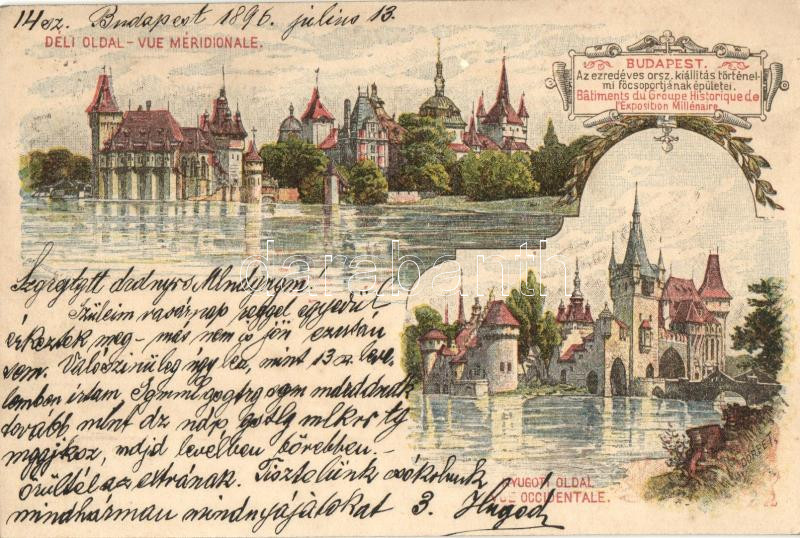 14 sz. Budapest 1896. július 13.
DÉLI OLDAL – VUE MÉRIDIONALE.
BUDAPEST.
Az ezredéves orsz. kiállitás történel-
mi főcsoportjának épületei.
Bâtiments du Groupe Historique de
l'Exposition Millénaire
darabanth
Szüleim vasárnap reggel egyedül
érkeztek meg – más nem is jön ezután
sem. Valószinüleg úgy lesz, mint 13 sz. leve-
lemben írtam.
tovább mint
majd levélben bővebben. –
örültél az extrának. Tisztelünk csókolunk
mindhárman mindnyájatokat 3. Hugod
NYUGOTI OLDAL
VUE OCCIDENTALE.